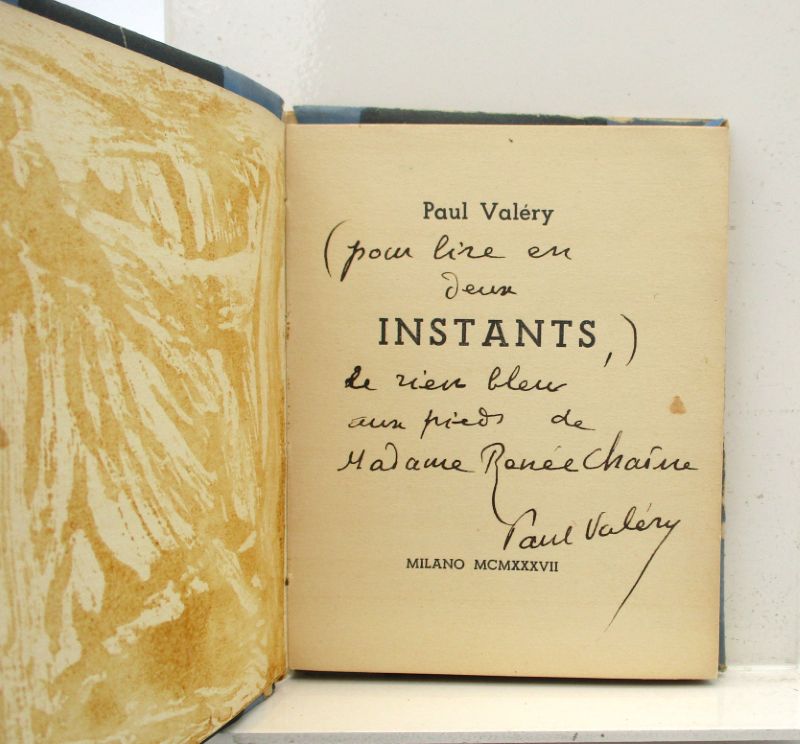 Paul Valéry
(pour lire en
deux
INSTANTS,)
ce rien bleu
aux pieds de
Madame Renée Chaine
Paul Valéry
MILANO MCMXXXVII